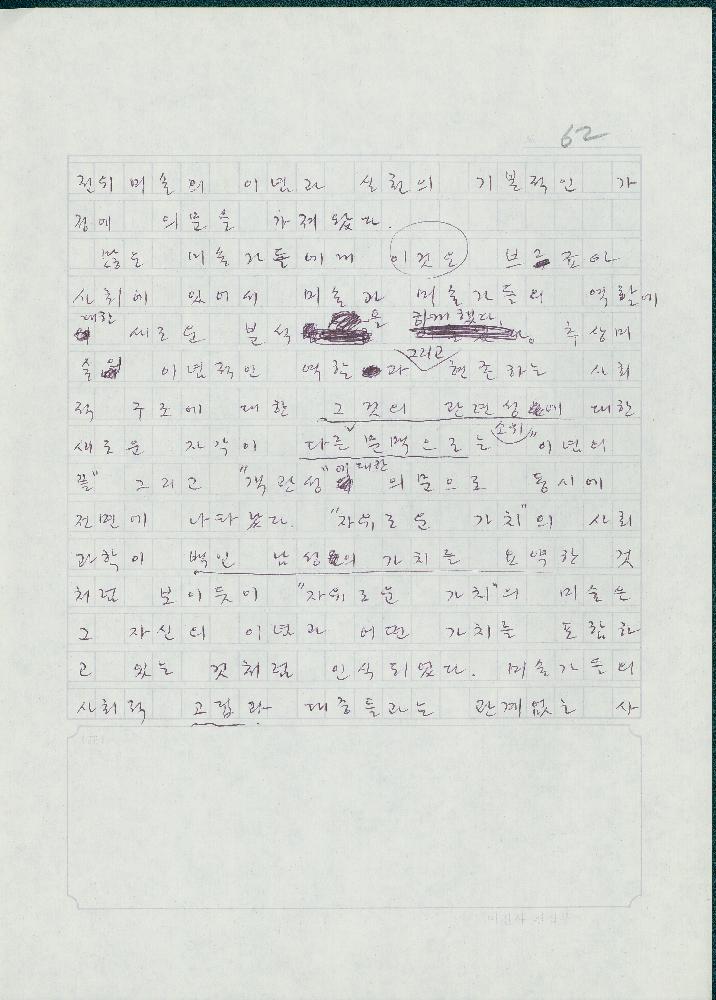 62
전위미술의 이념과 실천의 기본적인 가
정에 의문을 가져왔다.
많은 미술가들에게 이것은 브르죠아
사회에 있어서 미술과 미술가들의 역할에
대한 새로운 분석을 하게했다. 추상미
술의 이념적인 역할과 그리고 현존하는 사회
적 구조에 대한 그것의 관련성에 대한
새로운 자각이 다른 문맥으로는 소위 "이념의
끝" 그리고 "객관성"에 대한 의문으로 동시에
전면에 나타났다. "자유로운 가치"의 사회
과학이 백인 남성의 가치를 요약한 것
처럼 보이듯이 "자유로운 가치"의 미술은
그 자신의 이념과 어떤 가치를 포함하
고 있는 것처럼 인식되었다. 미술가들의
사회적 고립과 대중들과는 관계없는 사